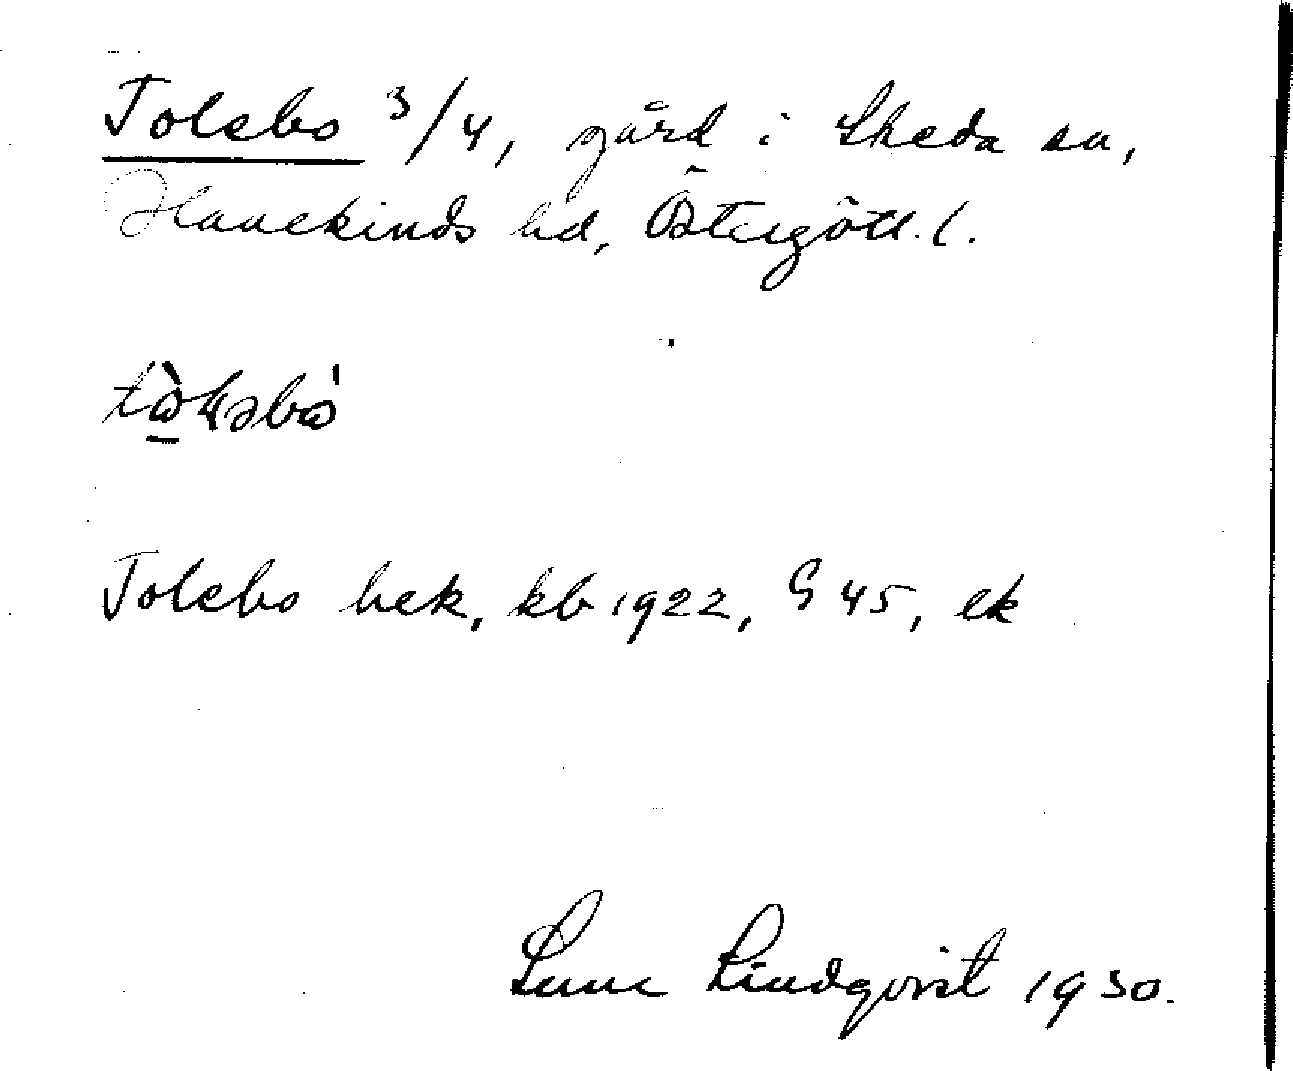 Tolebo 3/4, gård i Skeda sn,
Hanekinds hd, Östergötl. l.
Tolebo hek, kb 1922, G 45, ek
Sune Lindqvist 1930.